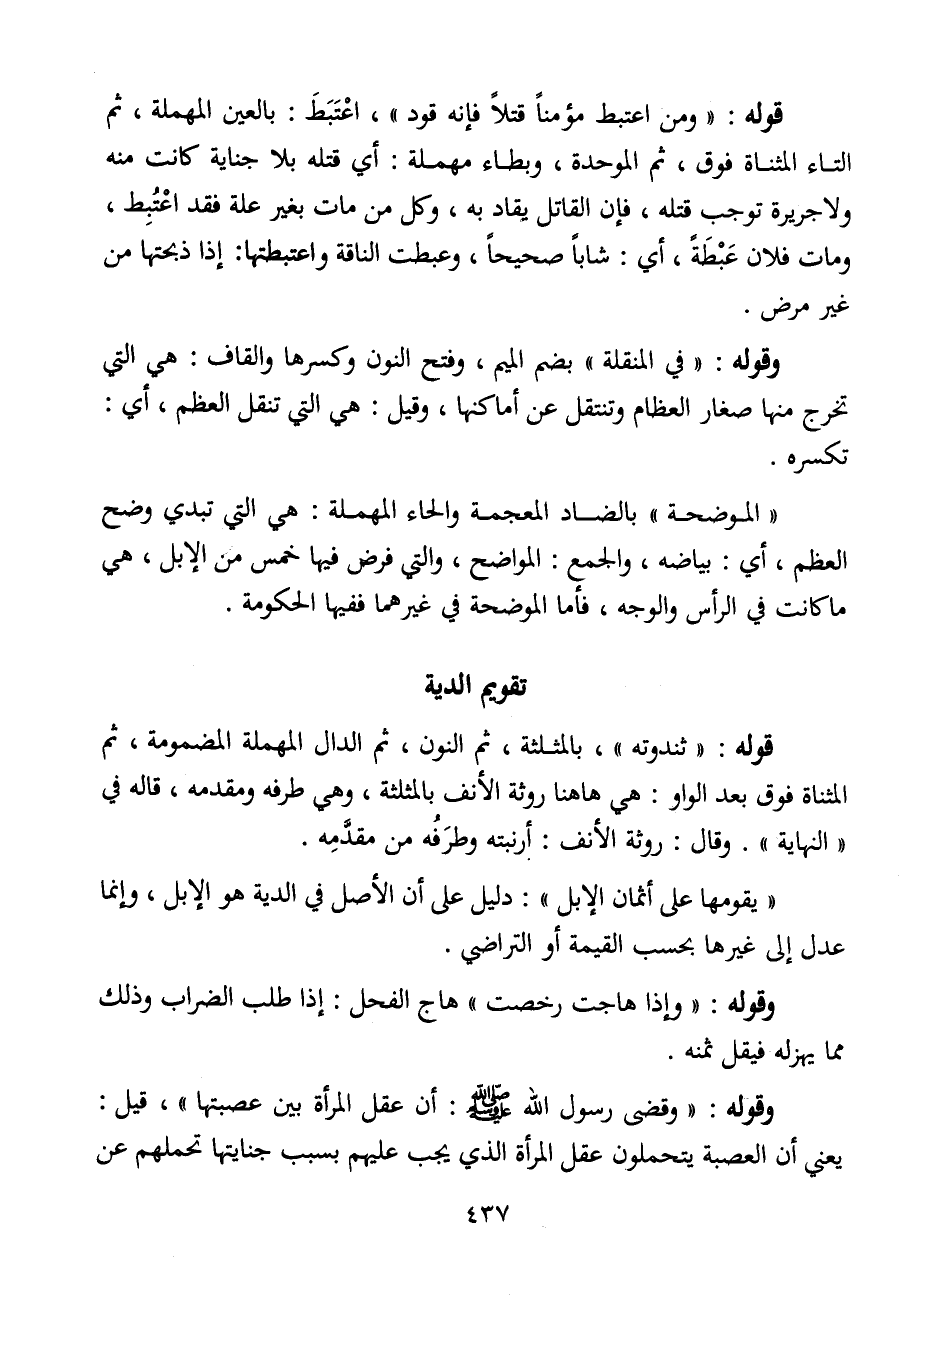 قوله : « ومن اعتبط مؤمناً قتلاً فإنه قود » ، اعْتَبَطَ : بالعين المهملة ، ثم
التاء المثناة فوق ، ثم الموحدة ، وبطاء مهملة : أي قتله بلا جناية كانت منه
ولاجريرة توجب قتله ، فإن القاتل يقاد به ، وكل من مات بغير علة فقد اعْتُبِط ،
ومات فلان عَبْطَةً ، أي : شاباً صحيحاً ، وعبطت الناقة واعتبطتها: إذا ذبحتها من
غير مرض .
وقوله : « في المنقلة » بضم الميم ، وفتح النون وكسرها والقاف : هي التي
تخرج منها صغار العظام وتنتقل عن أماكنها ، وقيل : هي التي تنقل العظم ، أي :
تكسره .
« الموضحة » بالضاد المعجمة والحاء المهملة : هي التي تبدي وضح
العظم ، أي : بياضه ، والجمع : المواضح ، والتي فرض فيها خمس من الإبل ، هي
ماكانت في الرأس والوجه ، فأما الموضحة في غيرهما ففيها الحكومة .
تقويم الدية
قوله : « ثندوته » ، بالمثلثة ، ثم النون ، ثم الدال المهملة المضمومة ، ثم
المثناة فوق بعد الواو : هي هاهنا روثة الأنف بالمثلثة ، وهي طرفه ومقدمه ، قاله في
« النهاية » . وقال : روثة الأنف : أرنبته وطرَفُه من مقدَّمِه .
« يقومها على أثمان الإبل » : دليل على أن الأصل في الدية هو الإبل ، وإنما
عدل إلى غيرها بحسب القيمة أو التراضي .
وقوله : « وإذا هاجت رخصت » هاج الفحل : إذا طلب الضراب وذلك
مما يهزله فيقل ثمنه .
وقوله : « وقضى رسول الله ﷺ : أن عقل المرأة بين عصبتها » ، قيل :
يعني أن العصبة يتحملون عقل المرأة الذي يجب عليهم بسبب جنايتها تحملهم عن
٤٣٧